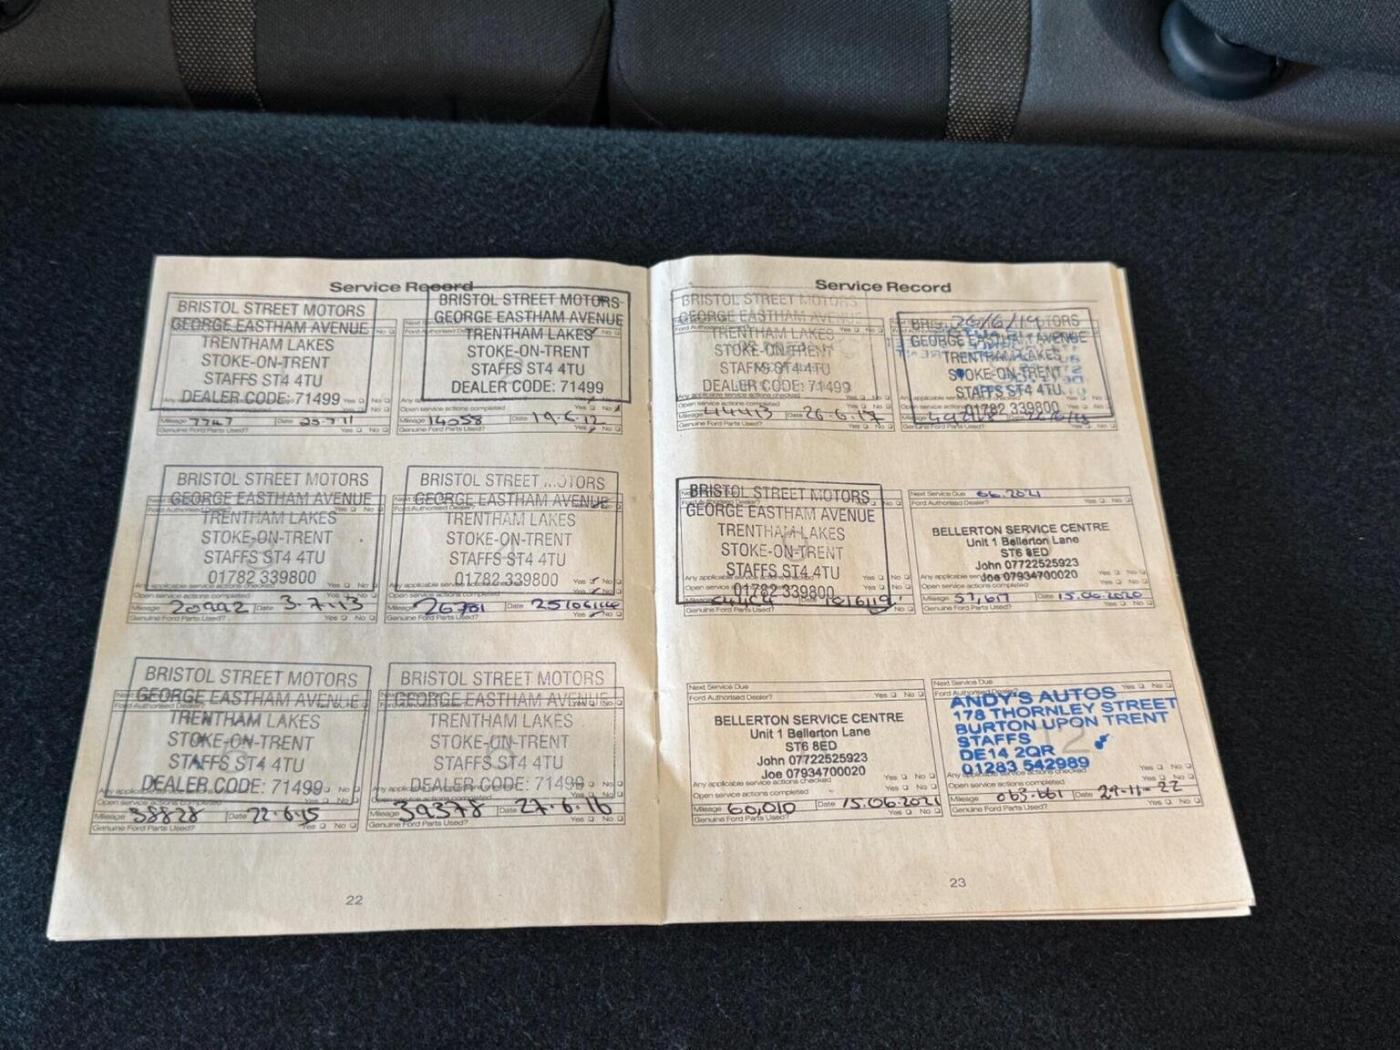 Service Record
BRISTOL STREET MOTORS
GEORGE EASTHAM AVENUE
TRENTHAM LAKES
STOKE-ON-TRENT
STAFFS ST4 4TU
DEALER CODE: 71499
Mileage 7747 Date 25.7.11
Genuine Ford Parts Used? Yes No
BRISTOL STREET MOTORS
GEORGE EASTHAM AVENUE
TRENTHAM LAKES
STOKE-ON-TRENT
STAFFS ST4 4TU
DEALER CODE: 71499
Open service actions completed Yes No
Mileage 14058 Date 19.6.12
Genuine Ford Parts Used? Yes No
BRISTOL STREET MOTORS
GEORGE EASTHAM AVENUE
TRENTHAM LAKES
STOKE-ON-TRENT
STAFFS ST4 4TU
01782 339800
Open service actions completed
Mileage 20992 Date 3.7.13
Genuine Ford Parts Used? Yes No
BRISTOL STREET MOTORS
GEORGE EASTHAM AVENUE
TRENTHAM LAKES
STOKE-ON-TRENT
STAFFS ST4 4TU
01782 339800
Any applicable service actions checked Yes No
Open service actions completed
Mileage 26781 Date 25/06/14
Genuine Ford Parts Used? Yes No
BRISTOL STREET MOTORS
GEORGE EASTHAM AVENUE
TRENTHAM LAKES
STOKE-ON-TRENT
STAFFS ST4 4TU
DEALER CODE: 71499
Open service actions completed Yes No
Mileage 38828 Date 22.6.15
Genuine Ford Parts Used? Yes No
BRISTOL STREET MOTORS
GEORGE EASTHAM AVENUE
TRENTHAM LAKES
STOKE-ON-TRENT
STAFFS ST4 4TU
DEALER CODE: 71499
Open service actions completed
Mileage 39378 Date 27.6.16
Genuine Ford Parts Used? Yes No
22
Service Record
BRISTOL STREET MOTORS
GEORGE EASTHAM AVENUE
TRENTHAM LAKES
STOKE-ON-TRENT
STAFFS ST4 4TU
DEALER CODE: 71499
Open service actions completed Yes No
Mileage 44413 Date 26.6.17
Genuine Ford Parts Used? Yes No
26/6/19
GEORGE EASTHAM AVENUE
TRENTHAM LAKES
STOKE-ON-TRENT
STAFFS ST4 4TU
01782 339800
Genuine Ford Parts Used? Yes No
BRISTOL STREET MOTORS
GEORGE EASTHAM AVENUE
TRENTHAM LAKES
STOKE-ON-TRENT
STAFFS ST4 4TU
01782 339800
Genuine Ford Parts Used? Yes No
Next Service Due 06.2021
Ford Authorised Dealer? Yes No
BELLERTON SERVICE CENTRE
Unit 1 Bellerton Lane
ST6 8ED
John 07722525923
Joe 07934700020
Open service actions completed Yes No
Mileage 57,617 Date 15.06.2020
Genuine Ford Parts Used? Yes No
Next Service Due
Ford Authorised Dealer? Yes No
BELLERTON SERVICE CENTRE
Unit 1 Bellerton Lane
ST6 8ED
John 07722525923
Joe 07934700020
Any applicable service actions checked Yes No
Open service actions completed Yes No
Mileage 60,010 Date 15.06.2021
Genuine Ford Parts Used? Yes No
Next Service Due
Ford Authorised Dealer? Yes No
ANDY'S AUTOS
178 THORNLEY STREET
BURTON UPON TRENT
STAFFS
DE14 2QR
01283 542989
Any applicable service actions checked Yes No
Open service actions completed Yes No
Mileage 063.661 Date 29-11-22
Genuine Ford Parts Used? Yes No
23